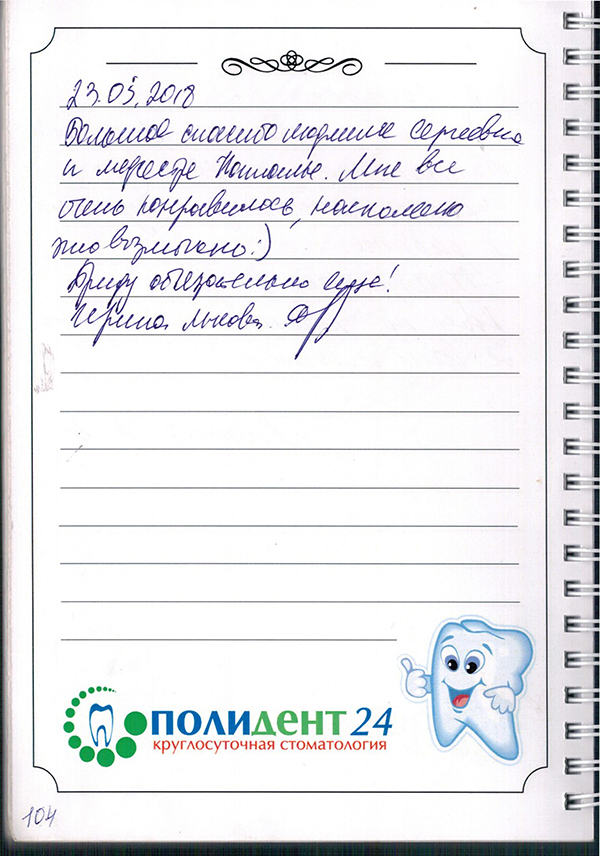 23.05.2018
Большое спасибо Людмиле Сергеевне
и медсестре Наталье. Мне все
очень понравилось, насколько
это возможно:)
Приду обязательно еще!
Ирина
ПОЛИДЕНТ 24
круглосуточная стоматология
104